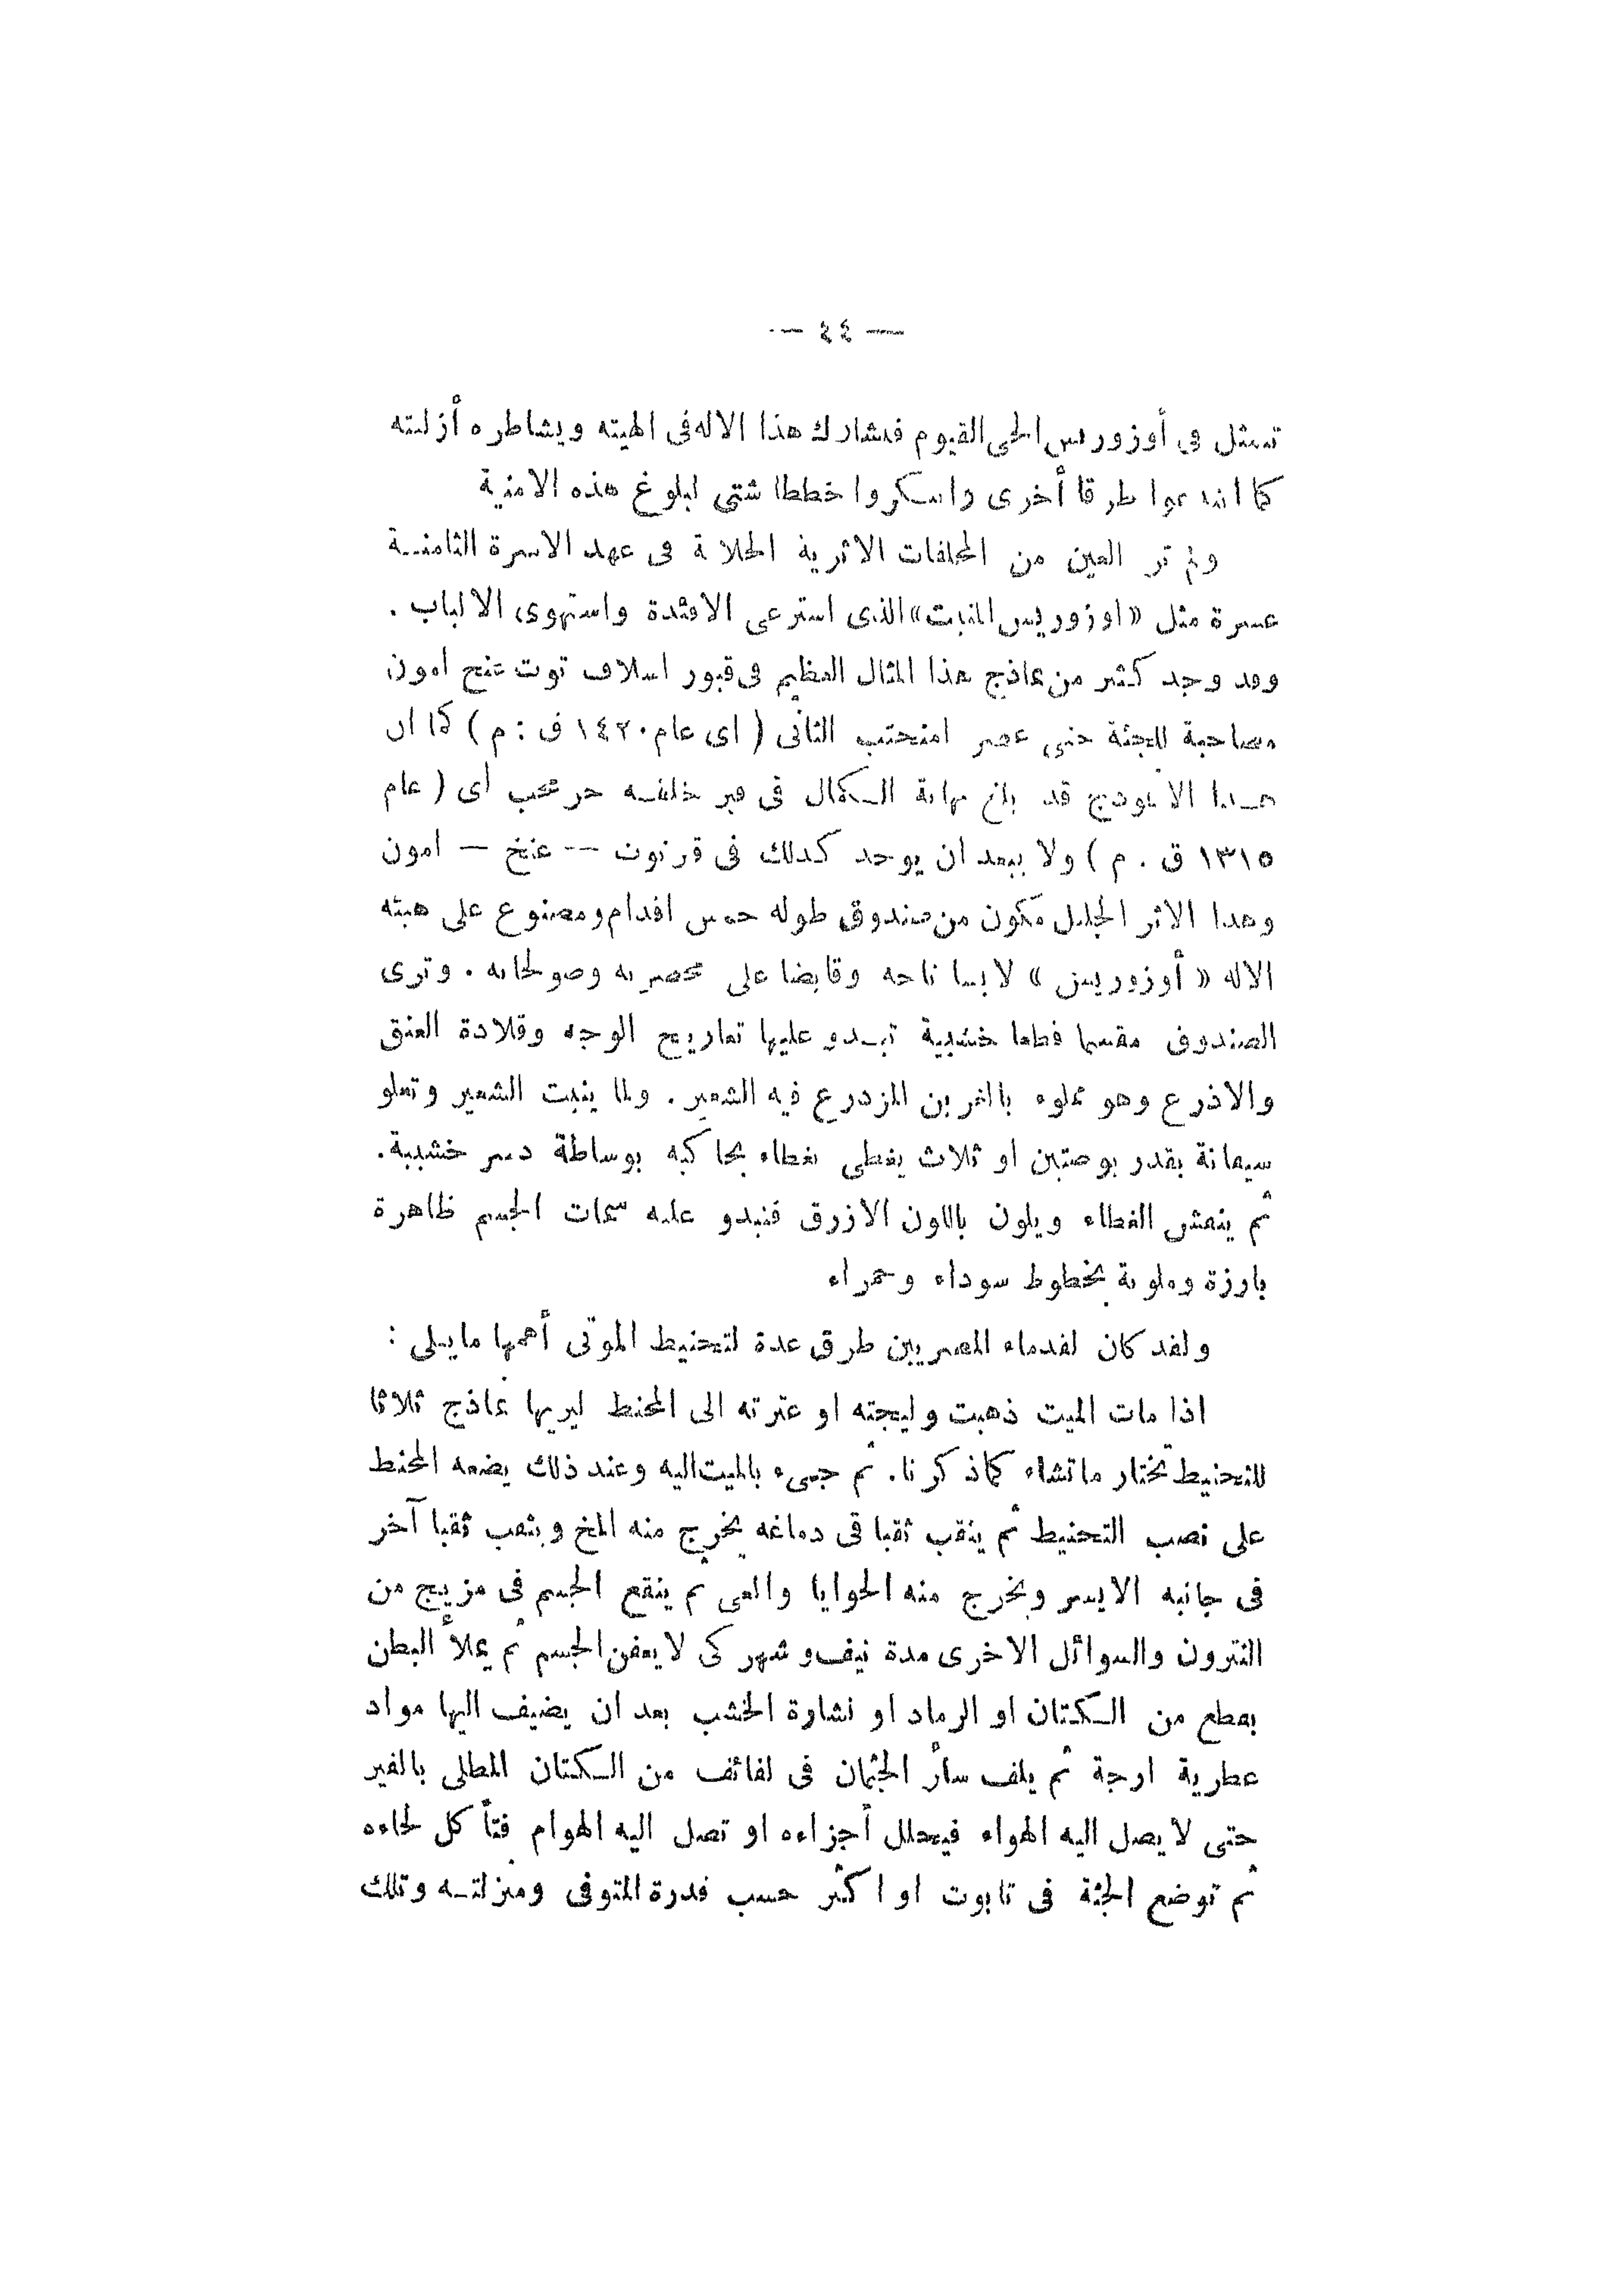 — ٤٤ —
تتمثل فى أوزوريس الحى القيوم فيشارك هذا الاله فى الهيته ويشاطره أزليته
كما ابتدعوا طرقا أخرى وابتكروا خططا شتى لبلوغ هذه الامنية
ولم تر العين من المخلفات الاثرية الخلابة فى عهد الاسرة الثامنة
عسرة مثل «اوزوريس المنبت» الذى استرعى الافئدة واستهوى الالباب .
وقد وجد كثير من نماذج هذا المثال العظيم فى قبور اسلاف توت عنخ امون
مصاحبة للجثة حتى عصر امنحتب الثانى ( اى عام ١٤٢٠ ق : م ) كما ان
هذا الانموذج قد بلغ نهاية الكمال فى قبر خليفته حرمحب أى ( عام
١٣١٥ ق . م ) ولا يبعد ان يوجد كذلك فى قر توت — عنخ — امون
وهذا الاثر الجليل مكون من صندوق طوله خمس اقدام ومصنوع على هيئه
الاله « أوزوريس » لابسا تاجه وقابضا على مخصرته وصولجانه . وترى
الصندوق مقسما قطعا خشبية تبدو عليها تعاريج الوجه وقلادة العنق
والاذرع وهو مملوء بالغرين المزدرع فيه الشعير . ولما ينبت الشعير وتعلو
سيقانة بقدر بوصتين او ثلاث يغطى بغطاء يحاكيه بوساطة دسر خشبية.
ثم ينعش الغطاء ويلون باللون الازرق فتبدو عليه سمات الجسم ظاهرة
بارزة وملونة بخطوط سوداء وحمراء
ولقد كان لقدماء المصريين طرق عدة لتحنيط الموتى أهمها مايلى :
اذا مات الميت ذهبت وليجته او عترته الى المحنط ليريها نماذج ثلاثا
للتحنيط تختار ماتشاء كماذكرنا. ثم جىء بالميت اليه وعند ذلك يضعه المحنط
على نصب التحنيط ثم ينقب ثقبا فى دماغه يخرج منه المخ ويثقب ثقبا آخر
فى جانبه الايسر ويخرج منه الحوايا والمعى ثم ينقع الجسم فى مزيج من
النترون والسوائل الاخرى مدة نيف وشهر كى لايعفن الجسم ثم يملأ البطن
بقطع من الكتان او الرماد او نشارة الخشب بعد ان يضيف اليها مواد
عطرية ارجة ثم يلف سائر الجثمان فى لفائف من الكتان المطلى بالقير
حتى لا يصل اليه الهواء فيحلل أجزاءه او تصل اليه الهوام فتأ كل لحاءه
ثم توضع الجثة فى تابوت او اكثر حسب قدرة المتوفى ومنزلته وتلك